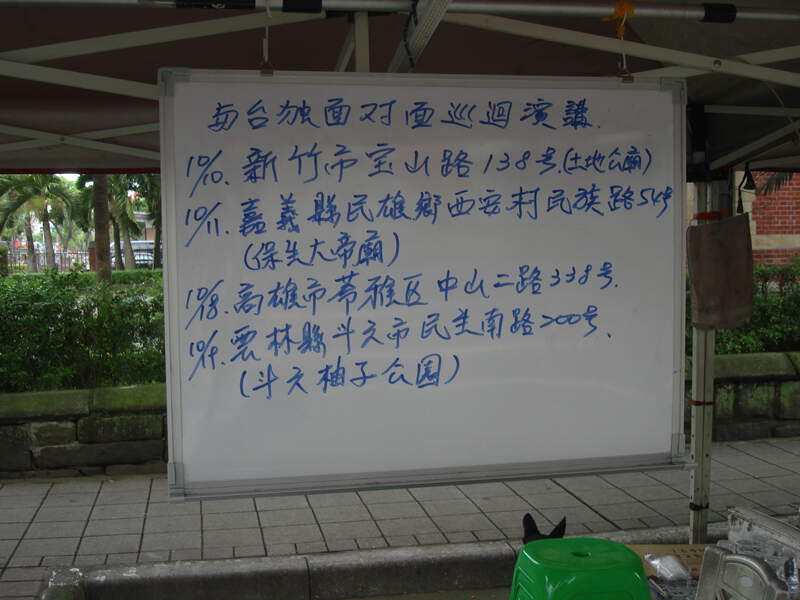 与台独面对面巡迴演講.
10/10. 新竹市宝山路138号.(土地公廟)
10/11. 嘉義縣民雄鄉西安村民族路54号
(保生大帝廟)
10/18. 高雄市苓雅区中山二路338号.
10/19. 雲林縣斗六市民生南路200号.
(斗六柚子公園)